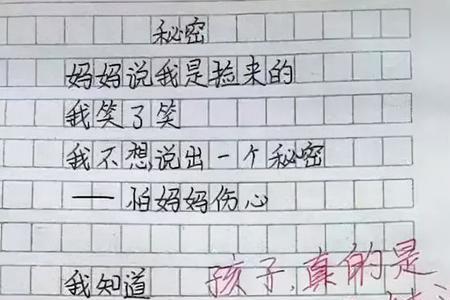 秘密
妈妈说我是捡来的
我笑了笑
我不想说出一个秘密
——怕妈妈伤心
我知道
孩子,真的是